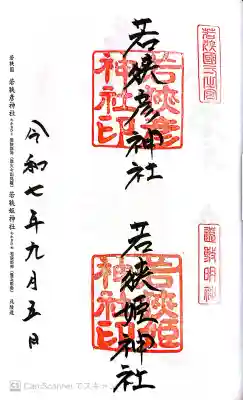 若狭國一之宮
若狭彦神社
若狭彦
神社印
遠敷明神
若狭姫神社
若狭姫
神社印
令和七年九月五日
若狭彦神社
若狭姫神社
CamScanner でスキャン